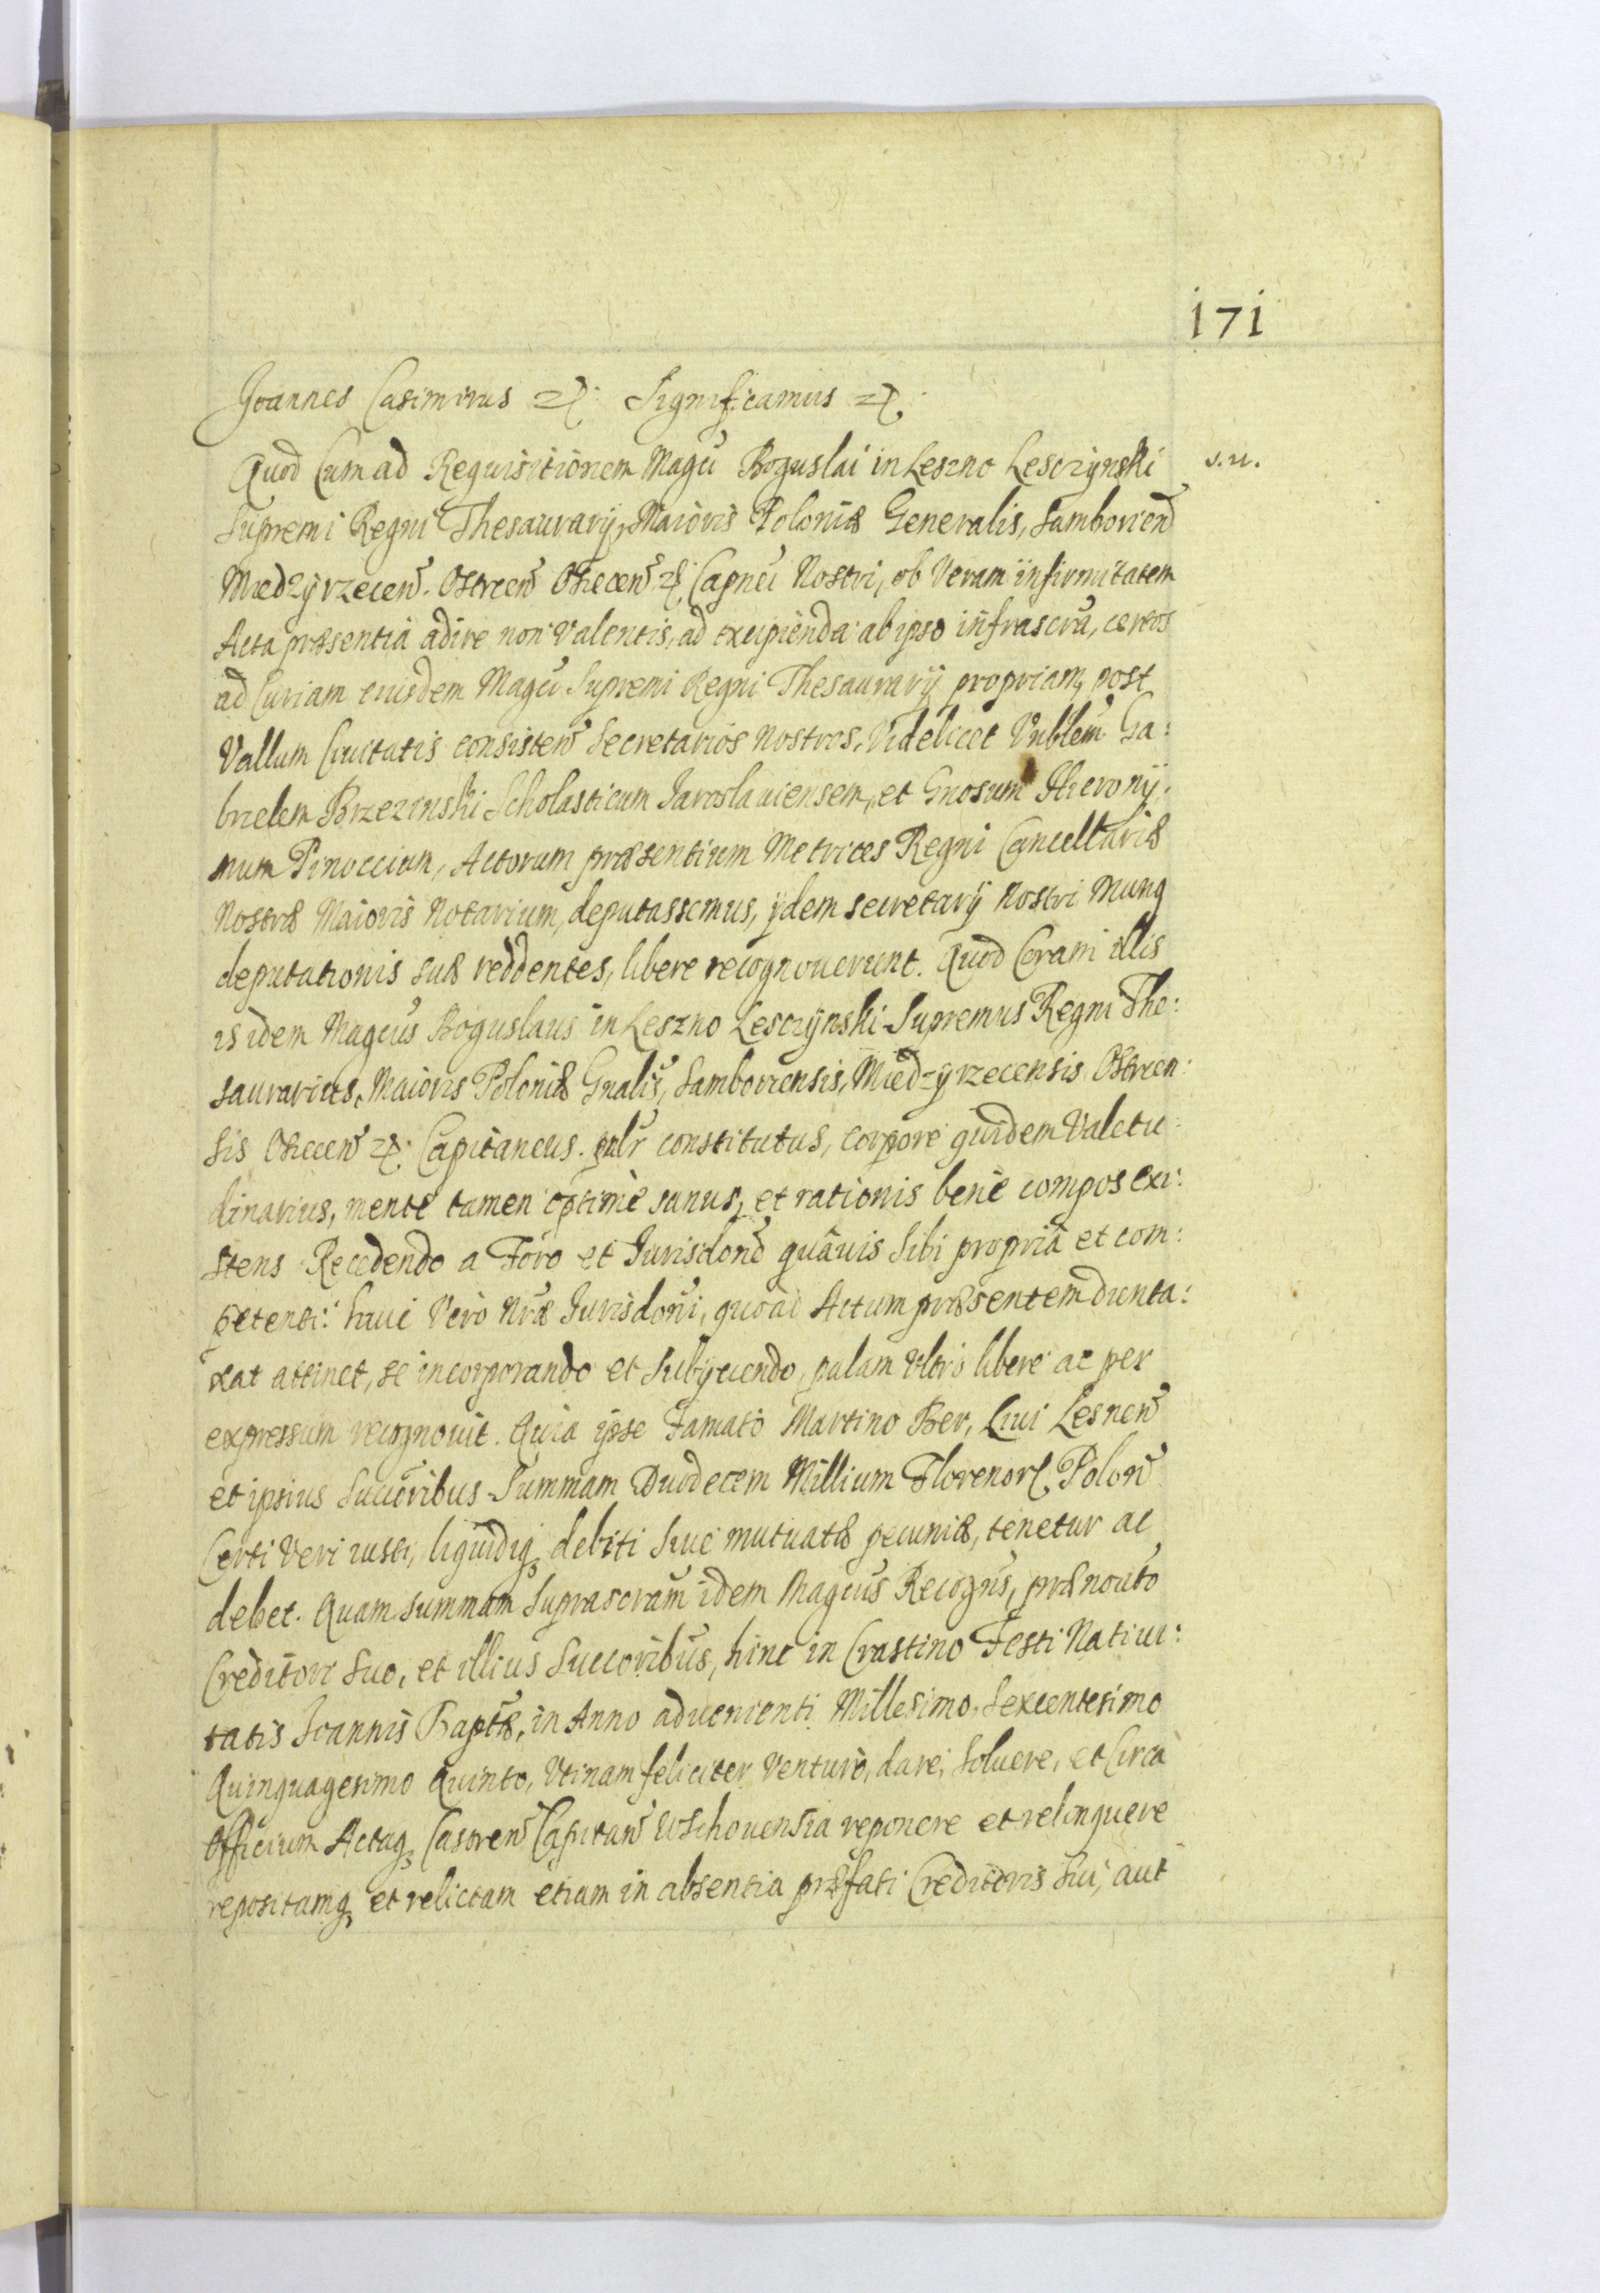 171
Joannes Casimirus etc: Significamus etc:
Quod Cum ad Requisitionem Magci Boguslai in Leszno Lesczynski
s. n.
Supremi Regni Thesaurarij, Maioris Poloniæ Generalis, Samborien
Miedzyrzecen. Ostrcen Osiecen etc. Capnei Nostri, ob Veram infirmitatem
Acta præsentia adire non Valentis, ad excipienda ab ipso infrascra, certos
ad Curiam eiusdem Magci Supremi Regni Thesaurarij propriam, post
Vallum Ciuitatis consisten Secretarios Nostros, Videlicet Vnblem Ga:
brielem Brzezinski Scholasticum Jaroslauiensem, et Gnosum Hierony:
mum Pinoccium, Actorum præsentium Metrices Regni Cancellariæ
Nostræ Maioris Notarium, deputassemus, ijdem secretarij Nostri Mung
deputationis suæ reddentes, libere recognouerunt. Quod Coram illis
is idem Magcus Boguslaus in Leszno Lesczynski Supremus Regni The:
saurarius, Maioris Poloniæ Gnalis, Samboriensis, Miedzyrzecensis Ostrcen:
sis Osiecen etc: Capitaneus. pnlr constitutus, corpore quidem Valetu:
dinarius, mente tamen optimè sanus, et rationis benè compos exi:
stens Recedendo a Foro et Jurisdone quâuis Sibi propriâ et com:
petenti: huic Verò Nræ Jurisdoni, quoad Actum præsentem dunta:
xat attinet, se incorporando et Subijciendo, palam Vltrò libere ac per
expressum recognouit. Quia ipse Famato Martino Ber, Ciui Lesnen
et ipsius Succoribus Summam Duodecem Millium Florenor. Polon
Certi Veri iusti, liquidiq debiti Siue mutuatæ pecuniæ, tenetur ac
debet. Quam Summam Suprascram idem Magcus Recogns, prænouto
Creditori Suo, et illius Succoribus, hinc in Crastino Festi Natiui:
tatis Joannis Baptæ, in Anno aduenienti Millesimo, Sexcentesimo
Quinquagesimo Quinto, Vtinam feliciter Venturo, dare, Soluere, et Circa
Officium Actaq Castren Capitan Wschouensia reponere et relinquere
repositamq et relictam etiam in absentia præfati Creditoris Sui, aut